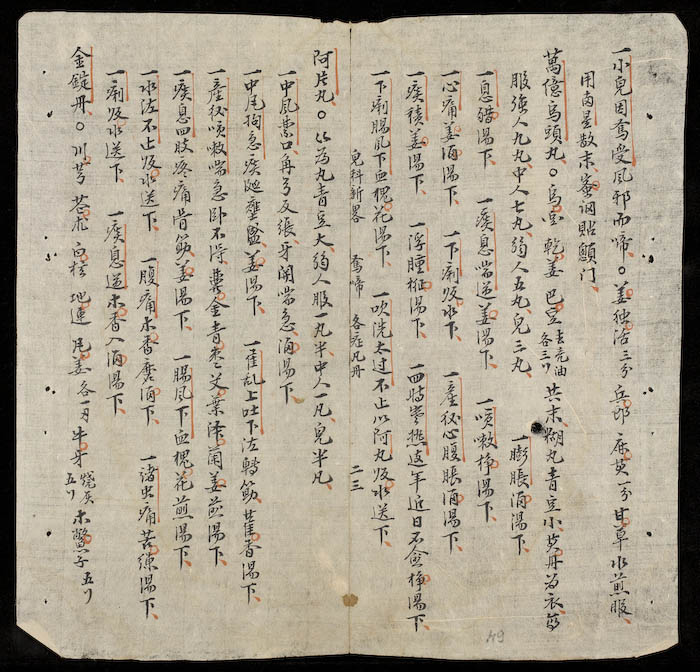 一小兒因驚受風邪而啼○羌独活三分兵郎 麻黄一分甘草水煎服
用南星散末蜜調貼顖门
萬億烏頭丸○烏豆乾姜 巴豆去壳油各三刂共末糊丸青豆小黄丹為衣
服强人九丸中人七丸弱人五丸兒三丸 一膨脹酒湯下
一息 湯下 一痰息喘逆姜湯下 一咳嗽 湯下
一心痛姜酒湯下 一下痢圾水下 一產後心腹脹酒湯下
一痰積姜湯下 一浮腫椒湯下 一四時 熱遠年近日不愈 湯下
一下痢腸風下血槐花湯下 一吹洗太过不止以阿丸圾水送下
兒科新畧 驚啼 各症丸丹 二三
阿片丸○ 為丸青豆大弱人服一丸半中人一丸兒半丸
一中風噤口角弓反張牙関喘急酒湯下
一中尾拘急痰 壅盛姜湯下 一霍乱上吐下泣轉筋藿香湯下
一產後咳嗽喘急卧不得 金青枣艾葉 蘭姜煎湯下
一痰息四肢疼痛骨筋姜湯下 一腸風下血槐花煎湯下
一水泣不止圾水送下 一腹痛木香磨酒下 一諸虫痛苦練湯下
一痢圾水送下 一痰息逆木香入酒湯下
金錠丹○川芎 蒼朮 白 地連 姜各一刀牛牙燒灰五刂木鱉子五刂
49